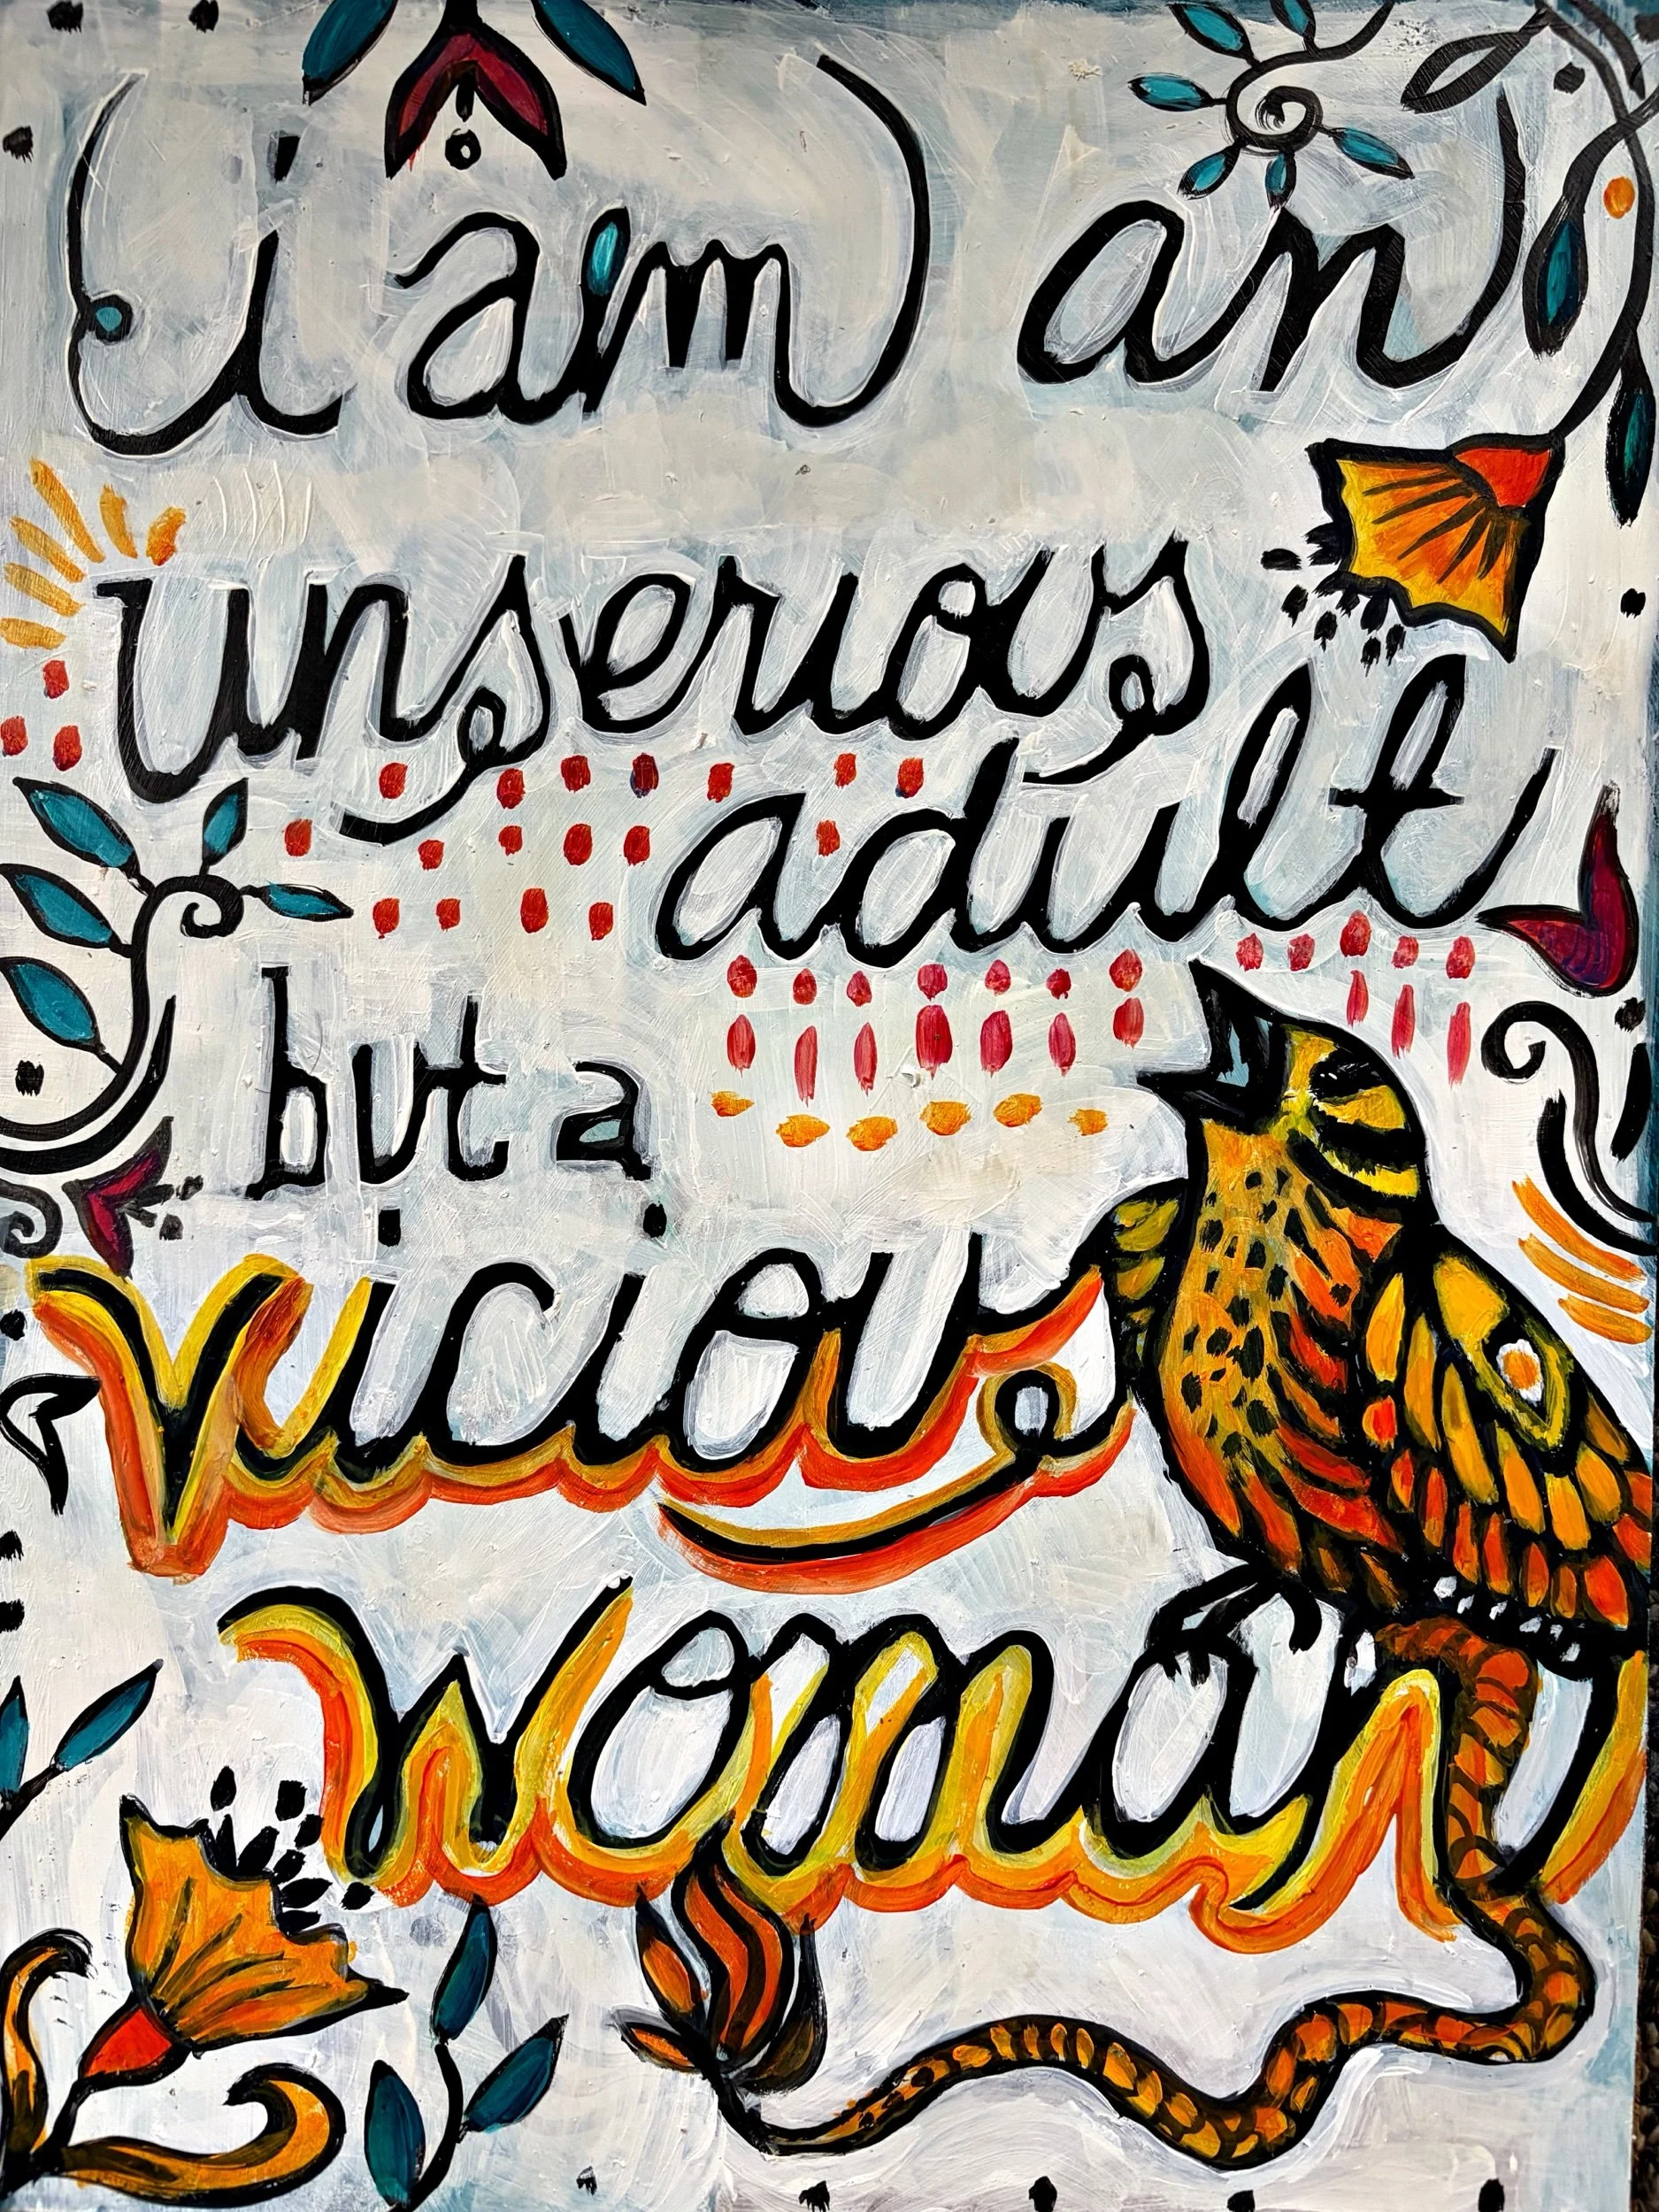 i am an
unserious
adult
but a
viciou
woman